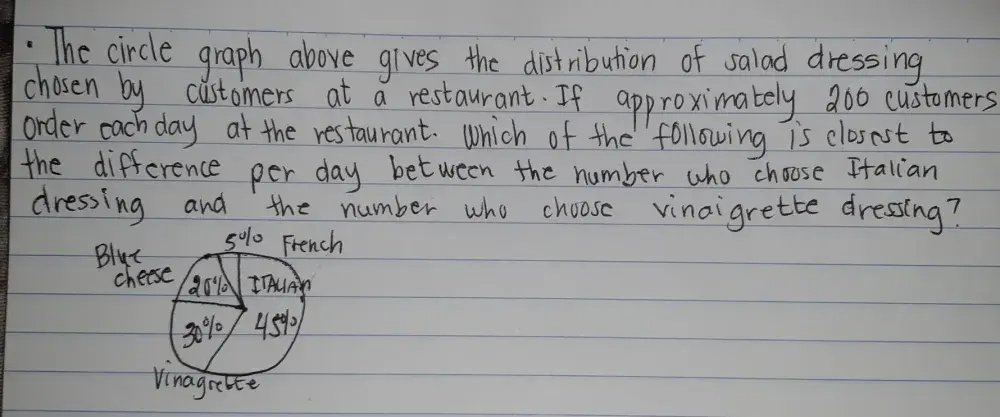 • The circle graph above gives the distribution of salad dressing
chosen by customers at a restaurant. If approximately 200 customers
order each day at the restaurant. Which of the following is closest to
the difference per day between the number who choose Italian
dressing and the number who choose vinaigrette dressing?
5% French
Blue
cheese
20%
ITALIAN
30%
45%
Vinagrette